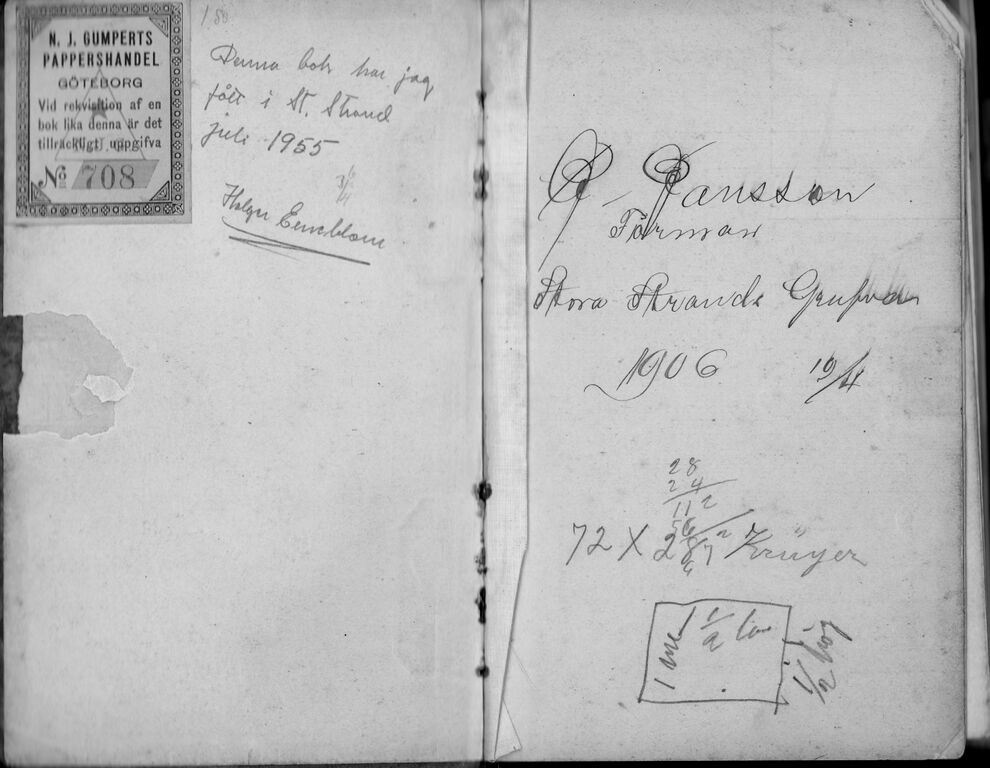 N. J. GUMPERTS
PAPPERSHANDEL
GÖTEBORG
Vid rekvisition af en
bok lika denna är det
tillräckligt uppgifva
No 708
Denna bok har jag
fått i St. Strand
juli 1955
Holger
Jansson
Förman
Stora Strands Grufvan
1906 19/4
28
24
112
56
72 X 28 Krüyer
1 1/2
1/2 hög